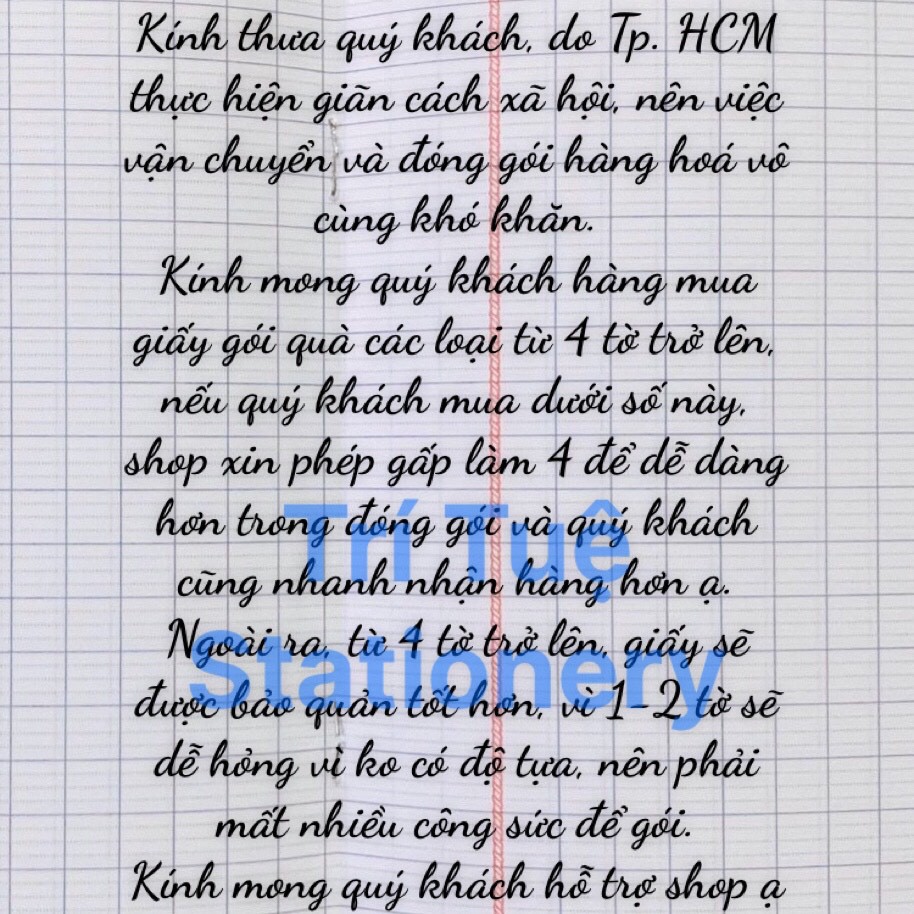 Kính thưa quý khách, do Tp. HCM
thực hiện giãn cách xã hội, nên việc
vận chuyển và đóng gói hàng hoá vô
cùng khó khăn.
Kính mong quý khách hàng mua
giấy gói quà các loại từ 4 tờ trở lên,
nếu quý khách mua dưới số này,
shop xin phép gấp làm 4 để dễ dàng
hơn trong đóng gói và quý khách
cũng nhanh nhận hàng hơn ạ.
Ngoài ra, từ 4 tờ trở lên, giấy sẽ
được bảo quản tốt hơn, vì 1-2 tờ sẽ
dễ hỏng vì ko có độ tựa, nên phải
mất nhiều công sức để gói.
Kính mong quý khách hỗ trợ shop ạ
Trí Tuệ
Stationery